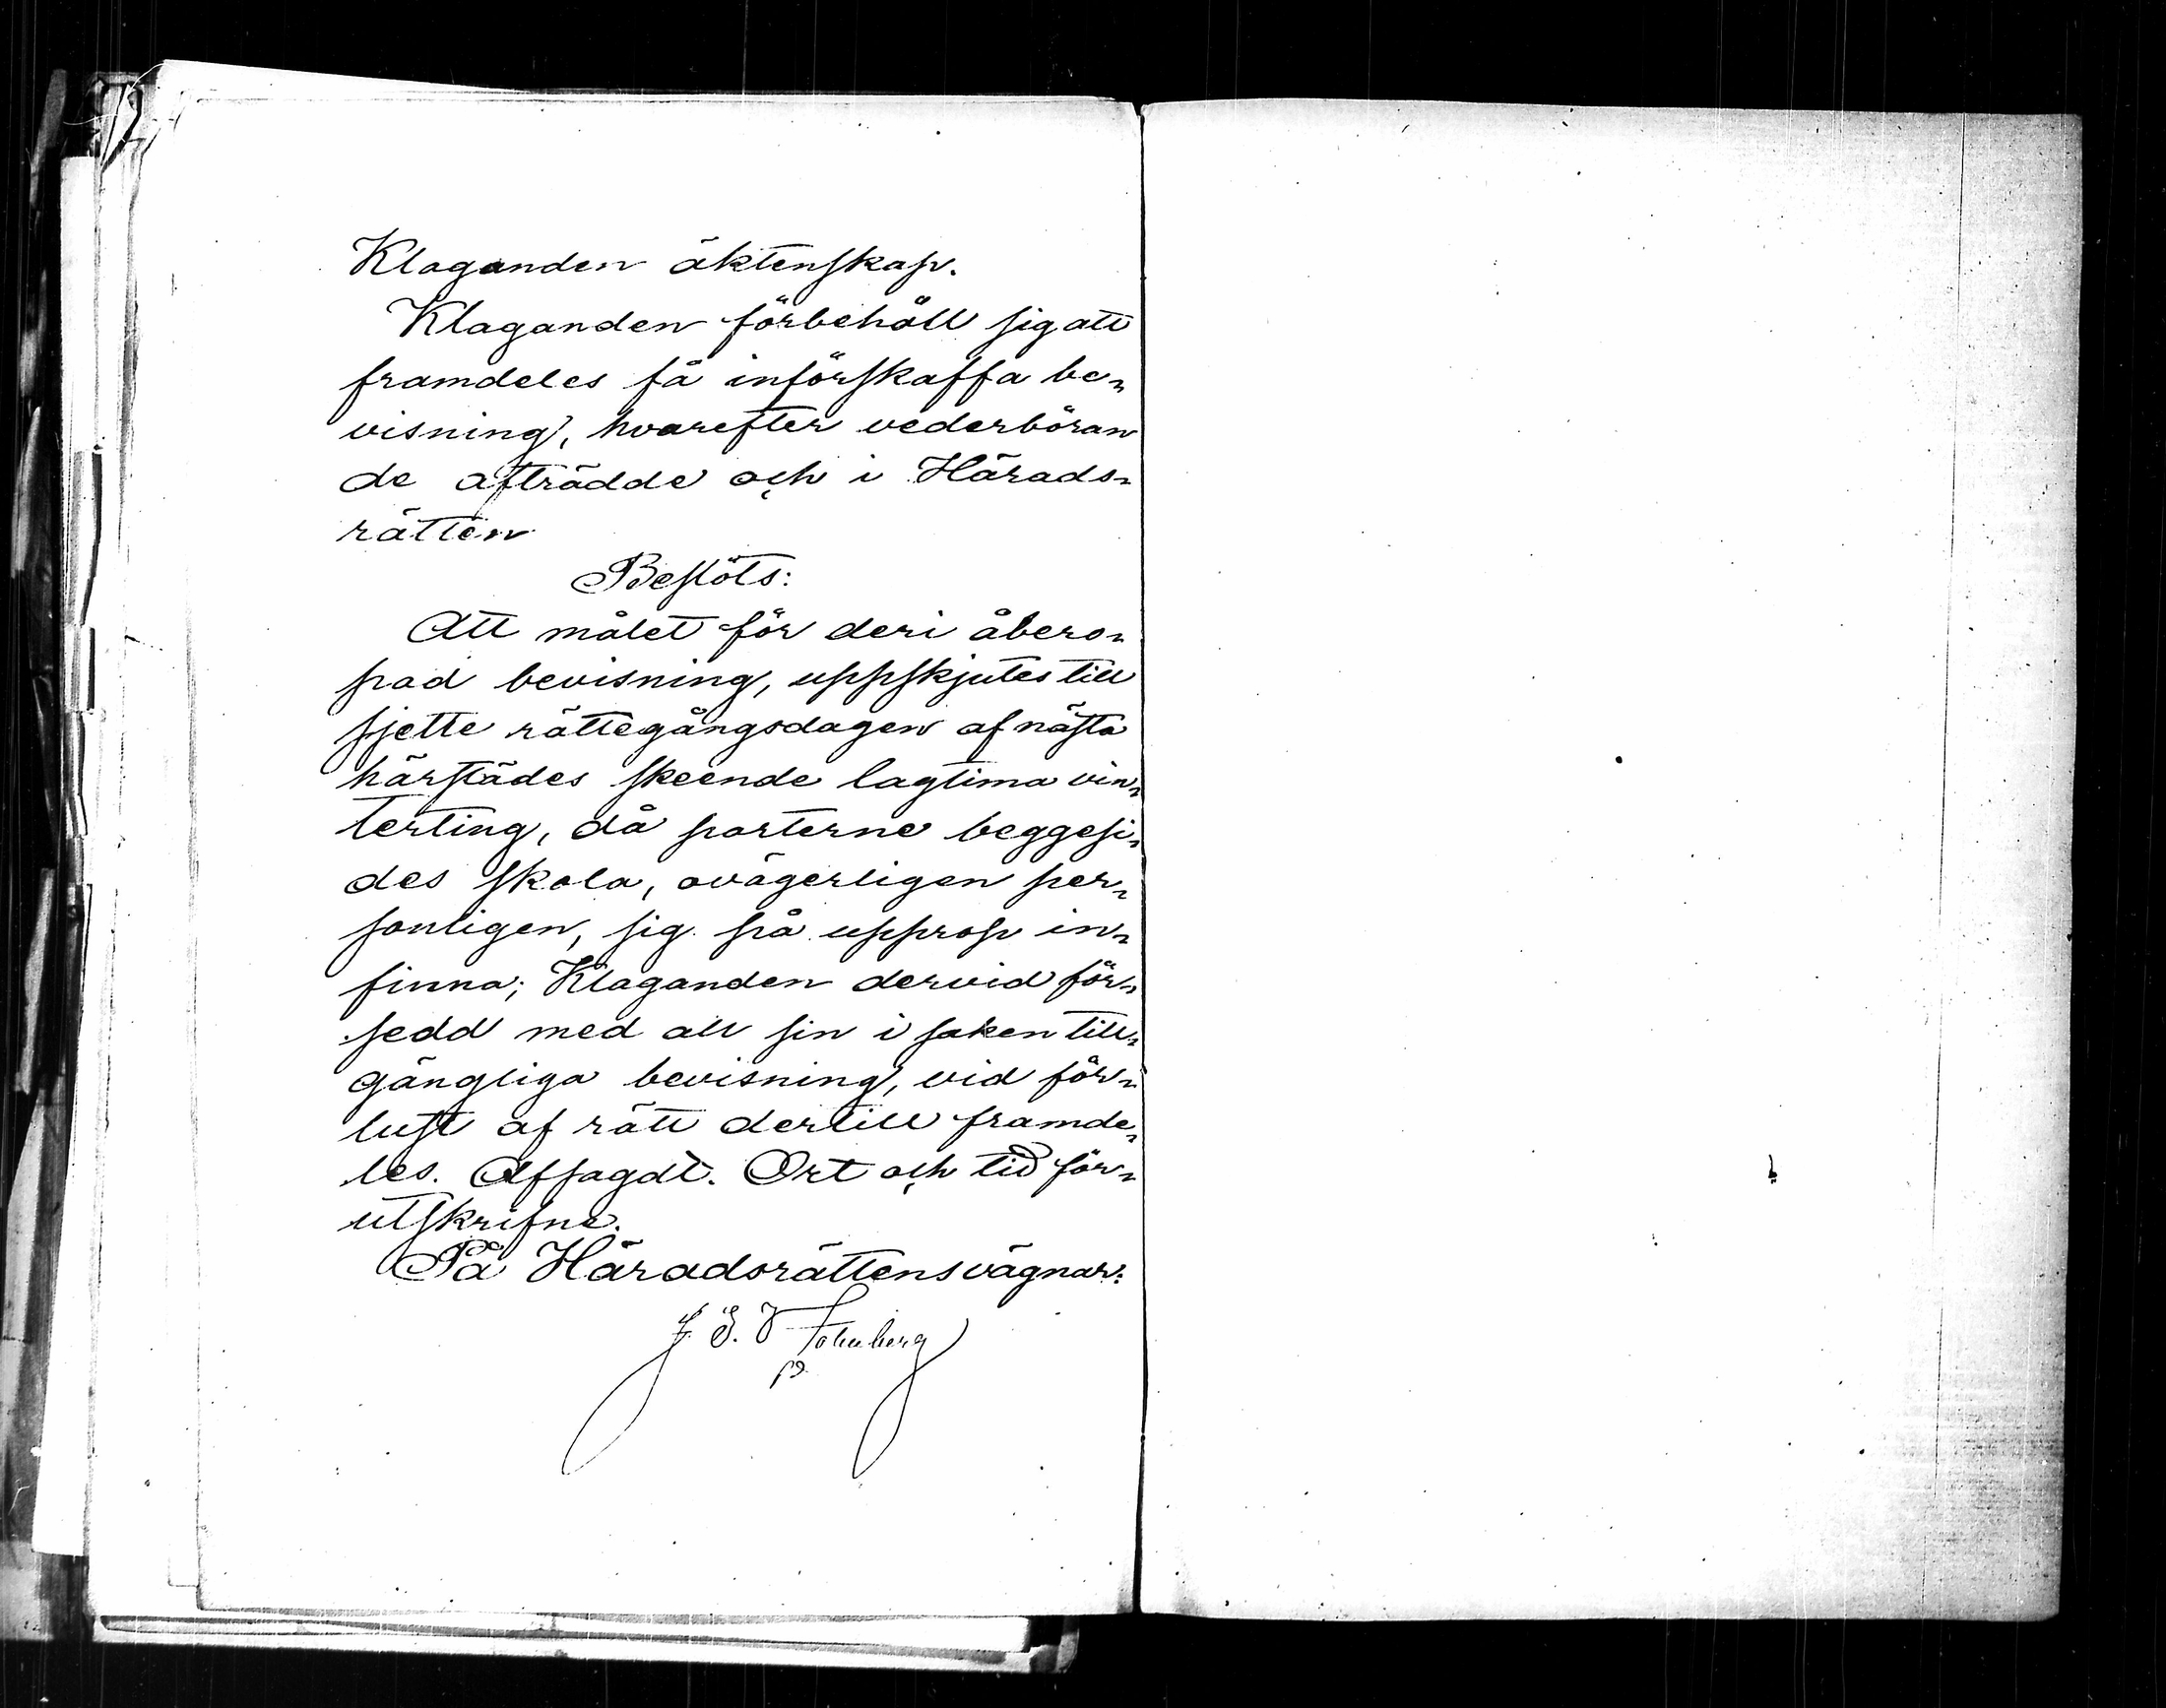 Klaganden äktenskap.
Klaganden förbehöll sig att
framdeles få införskaffa be-
visning, hvarefter vederböran
de afträdde och i Härads-
rätten
Beslöts:
Att målet för deri åbero-
pad bevisning, uppskjutes till
sjette rättegångsdagen af nästa
härstädes skeende lagtima vin-
terting, då parterne beggesi-
des skola, ovägerligen per-
sonligen, sig på upprop in-
finna; Klaganden dervid för-
sedd med all sin i saken till-
gängliga bevisning, vid för-
lust af rätt dertill framde-
les. Afsagdt. Ort och tid för-
utskrifne.
På Häradsrättens vägnar: